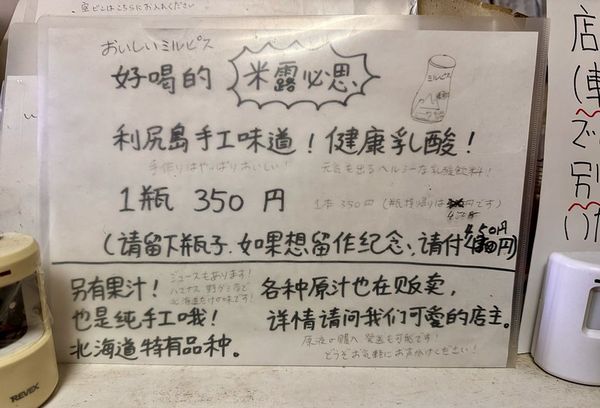 空ビンはこちらにお入れください
おいしいミルピス
好喝的 米露必思、
ミルピス
利尻島手工味道！健康乳酸！
手作りはやっぱりおいしい！ 元気も出るヘルシーな乳酸飲料！
1瓶 350 円 1本 350円 (瓶持帰りは 円です)
450
450円
(请留下瓶子.如果想留作纪念、请付 円)
另有果汁！ ジュースもあります！ 各种原汁也在贩卖,
北海道だけの味です！
也是纯手工哦！ 详情请问我们可爱的店主。
北海道特有品种。 原液の購入 発送も可能です！
どうぞお気軽にお声かけください！
REVEX
店
(車
で
別
い